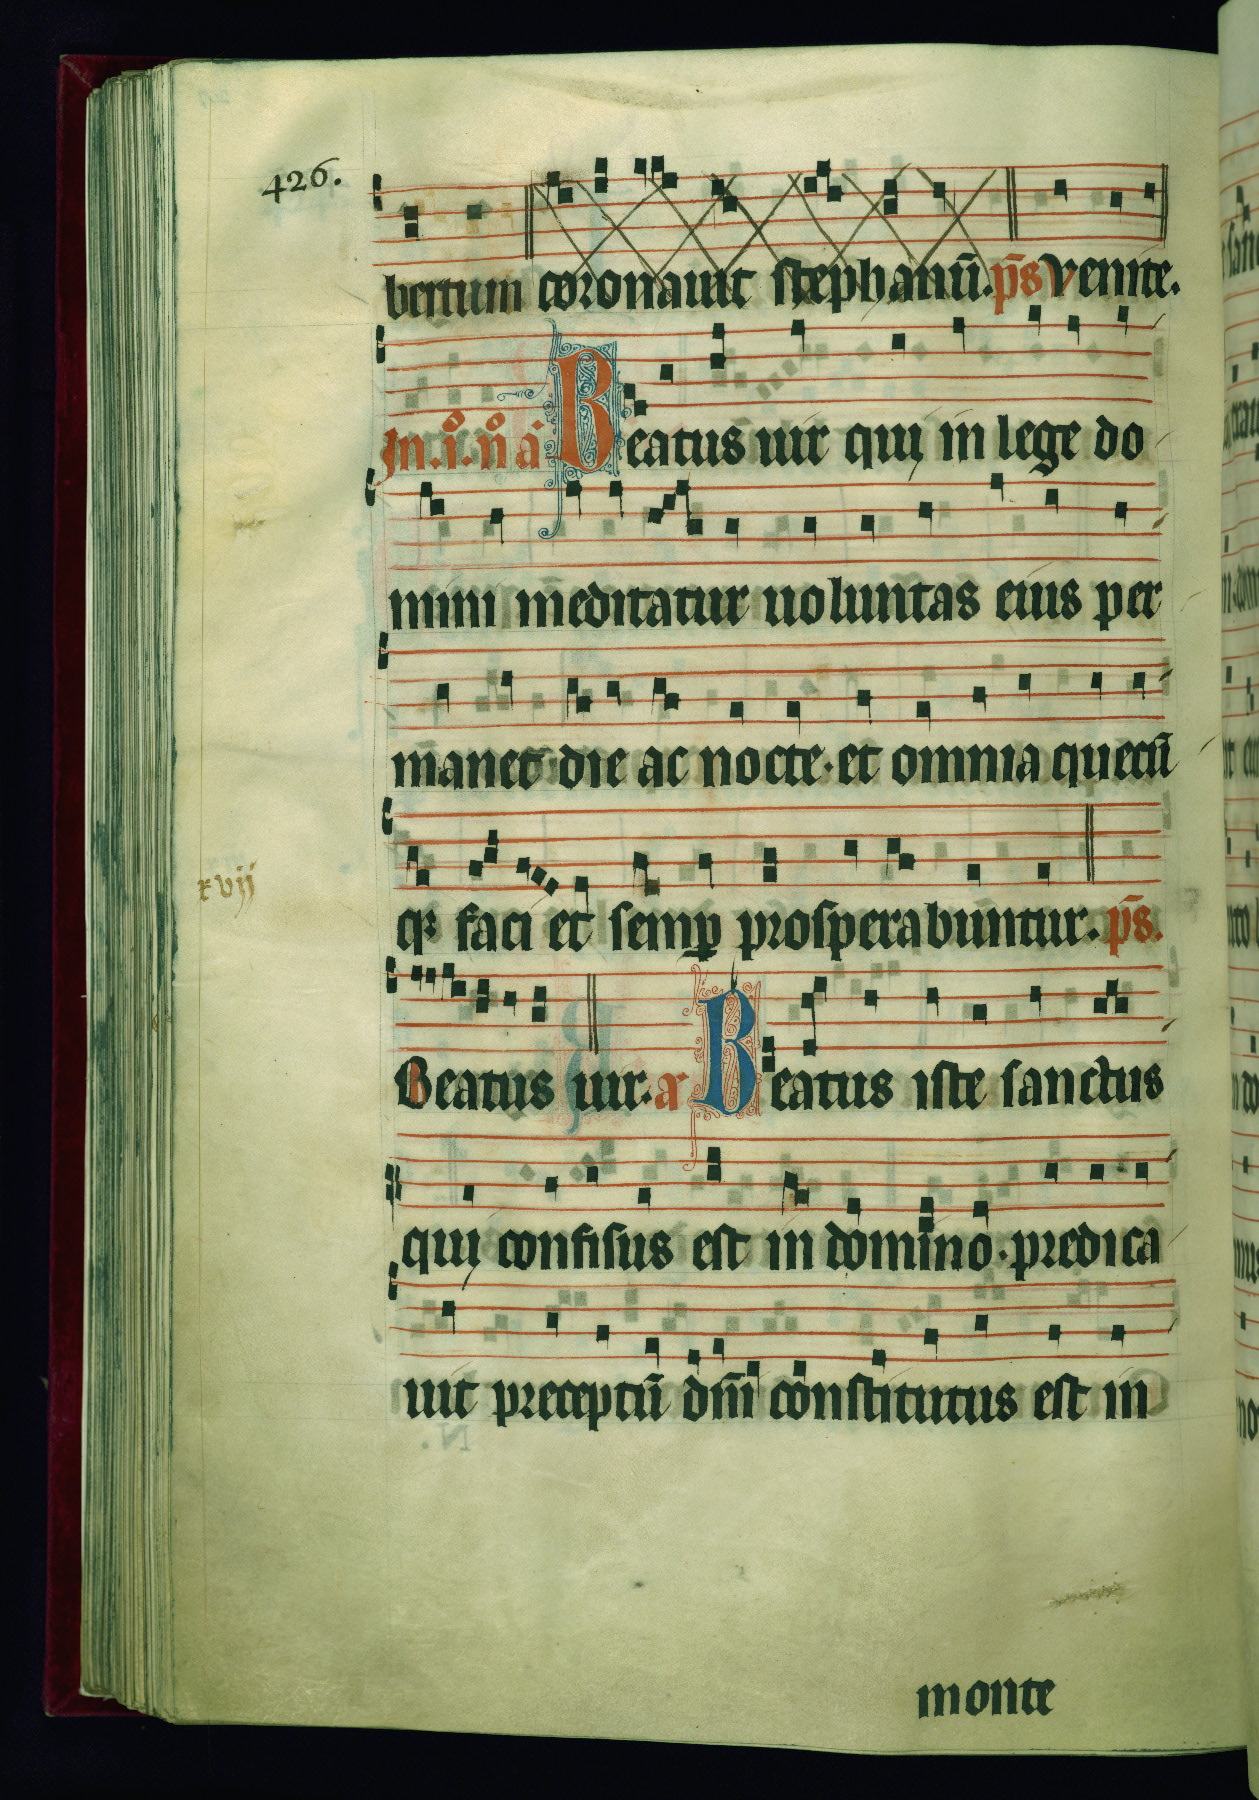 426.
bertum coronauit stephanū. p̄s venite.
In .i. n̊ a Beatus uir qui in lege do
mini meditatur uoluntas eius per
manet die ac nocte. et omnia quecū
xvij
qꝫ faci et semꝑ prosperabuntur. p̄s.
Beatus uir. a Beatus iste sanctus
qui confisus est in domino. predica
uit preceptū dn̄i constitutus est in
monte